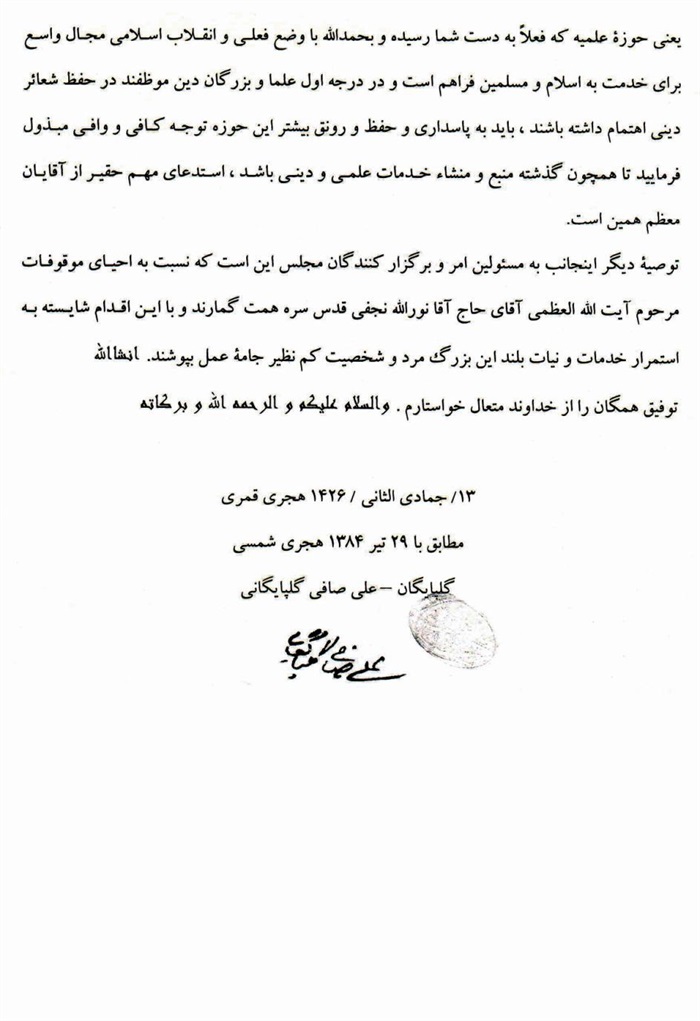 یعنی حوزهٔ علمیه که فعلاً به دست شما رسیده و بحمدالله با وضع فعلی و انقلاب اسلامی مجال واسع
برای خدمت به اسلام و مسلمین فراهم است و در درجه اول علما و بزرگان دین موظفند در حفظ شعائر
دینی اهتمام داشته باشند ، باید به پاسداری و حفظ و رونق بیشتر این حوزه توجه کافی و وافی مبذول
فرمایید تا همچون گذشته منبع و منشاء خدمات علمی و دینی باشد ، استدعای مهم حقیر از آقایان
معظم همین است.
توصیهٔ دیگر اینجانب به مسئولین امر و برگزار کنندگان مجلس این است که نسبت به احیای موقوفات
مرحوم آیت الله العظمی آقای حاج آقا نورالله نجفی قدس سره همت گمارند و با این اقدام شایسته به
استمرار خدمات و نیات بلند این بزرگ مرد و شخصیت کم نظیر جامهٔ عمل بپوشند. انشاالله
توفیق همگان را از خداوند متعال خواستارم . والسلام علیکم و الرحمه الله و برکاته
۱۳/ جمادی الثانی / ۱۴۲۶ هجری قمری
مطابق با ۲۹ تیر ۱۳۸۴ هجری شمسی
گلپایگان – علی صافی گلپایگانی
علی صافی گلپایگانی